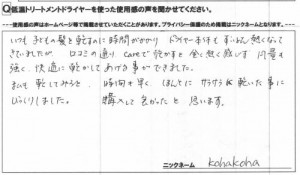 Q低温トリートメントドライヤーを使った使用感の声を聞かせてください。
----使用感の声はホームページ等で掲載させていただくことがあります。プライバシー保護のため掲載はニックネームとなります。----
いつも 子どもの髪を乾すのに時間がかかり ドライヤー本体も ずいぶん熱くなって
きていましたが 口コミの通り careで乾かすと 全く熱く感じず 風量も
強く、快適に乾かしてあげる事ができました。
乾してみると 時間も早く ほんとに サラサラに乾いた事に
びっくりしました。 購入して良かったと 思います。
ニックネーム kohakoha